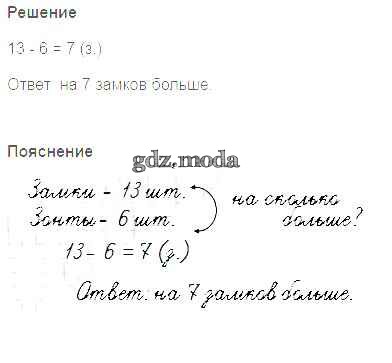 Решение
13 - 6 = 7 (з.)
Ответ на 7 замков больше.
Пояснение
gdz.moda
Замки - 13 шт.
Зонты - 6 шт.
на сколько
больше?
13 - 6 = 7 (з.)
Ответ: на 7 замков больше.